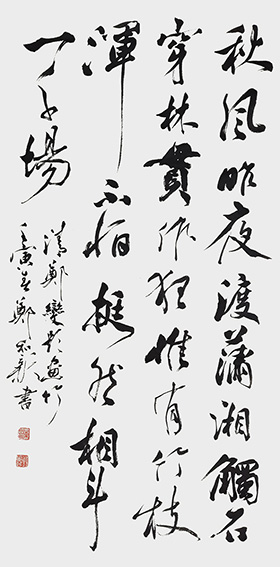 秋風昨夜渡瀟湘觸石
穿林貫作狂惟有竹枝
渾不怕挺然相斗
一千場
清鄭燮題畫竹
壬寅春鄭書